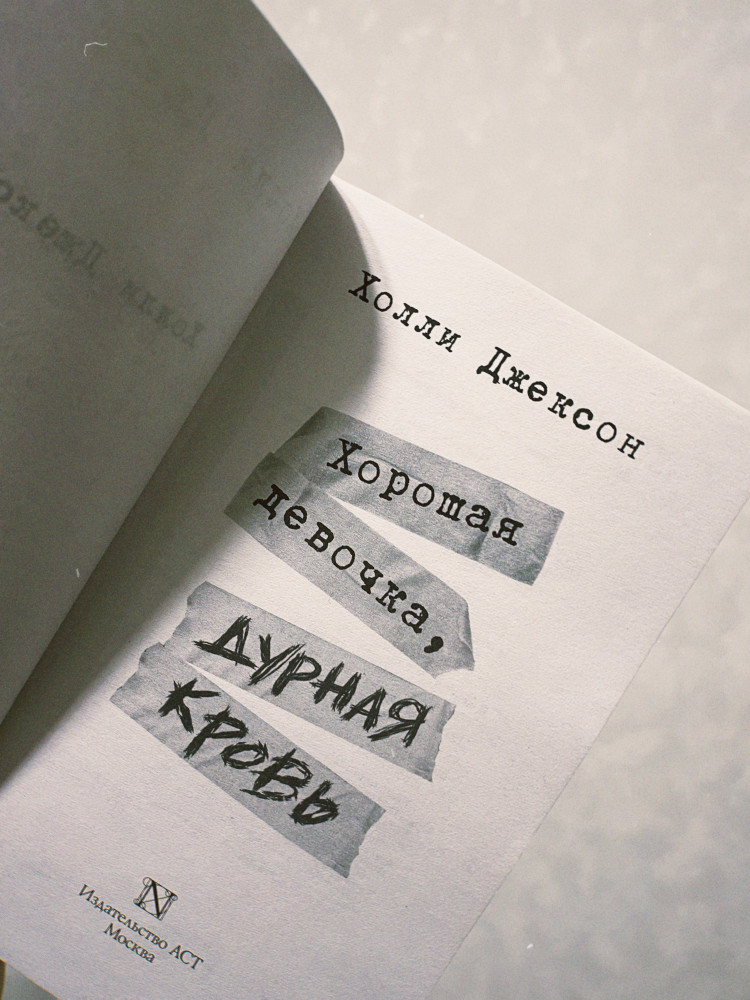 Холли Джексон
Хорошая
девочка,
ДУРНАЯ
КРОВЬ
Издательство АСТ
Москва